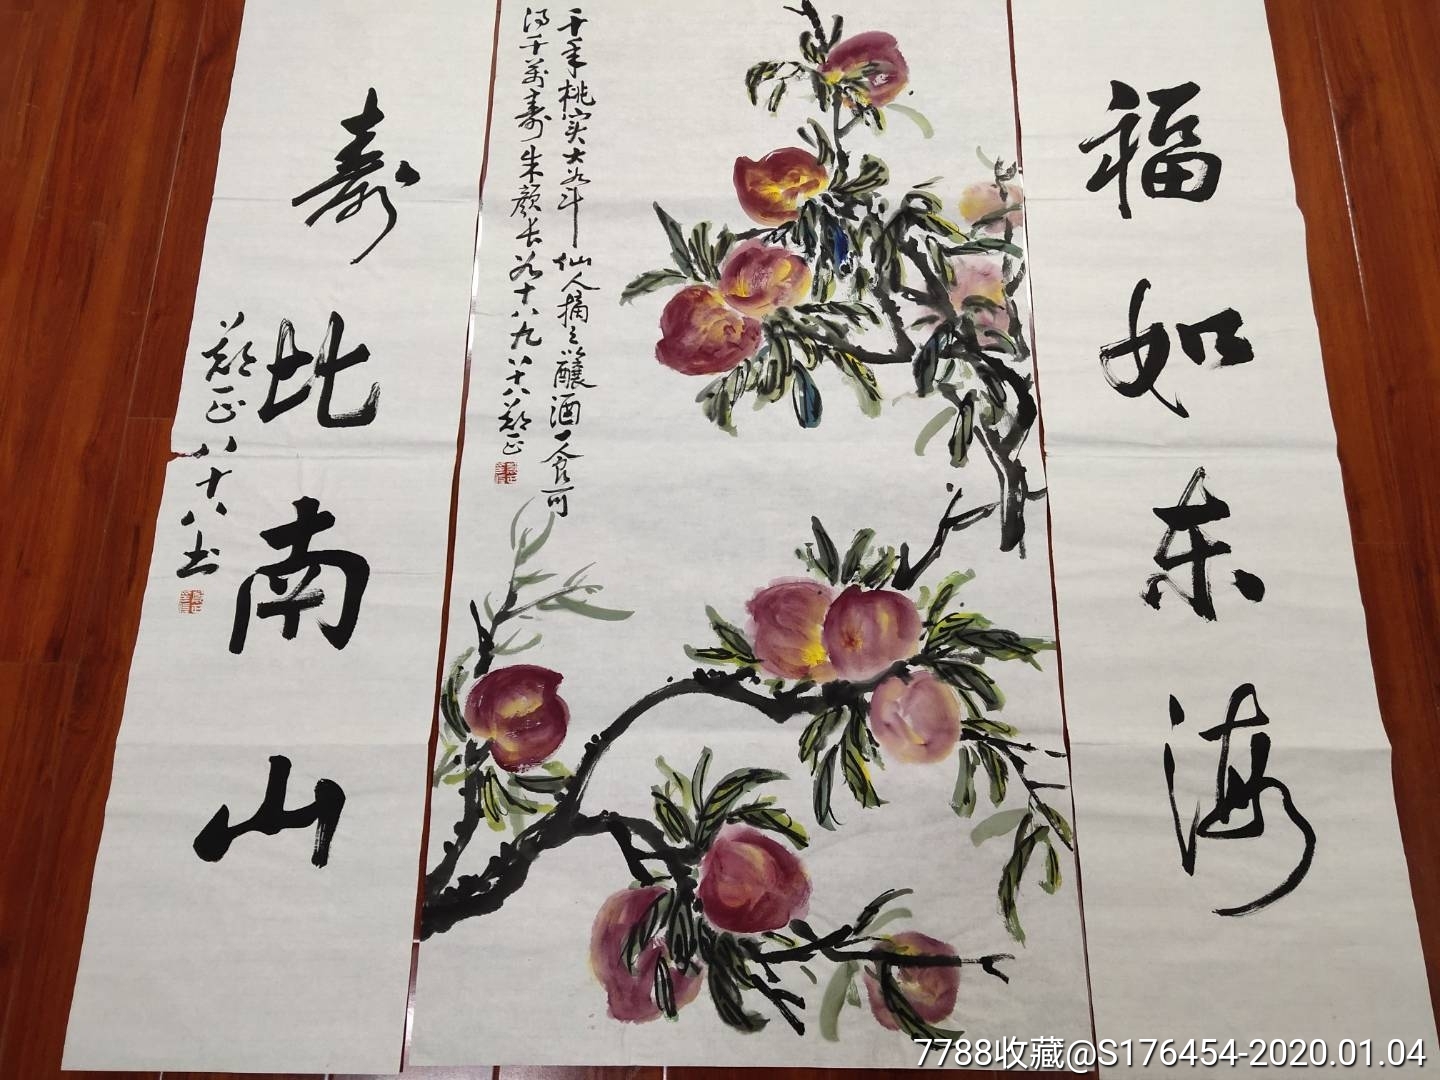 福如东海
千年桃实大如斗仙人摘之以酿酒一食可
得千万寿朱颜长如十八九八十八郑正
寿比南山
郑正八十八书
7788收藏@S176454-2020.01.04